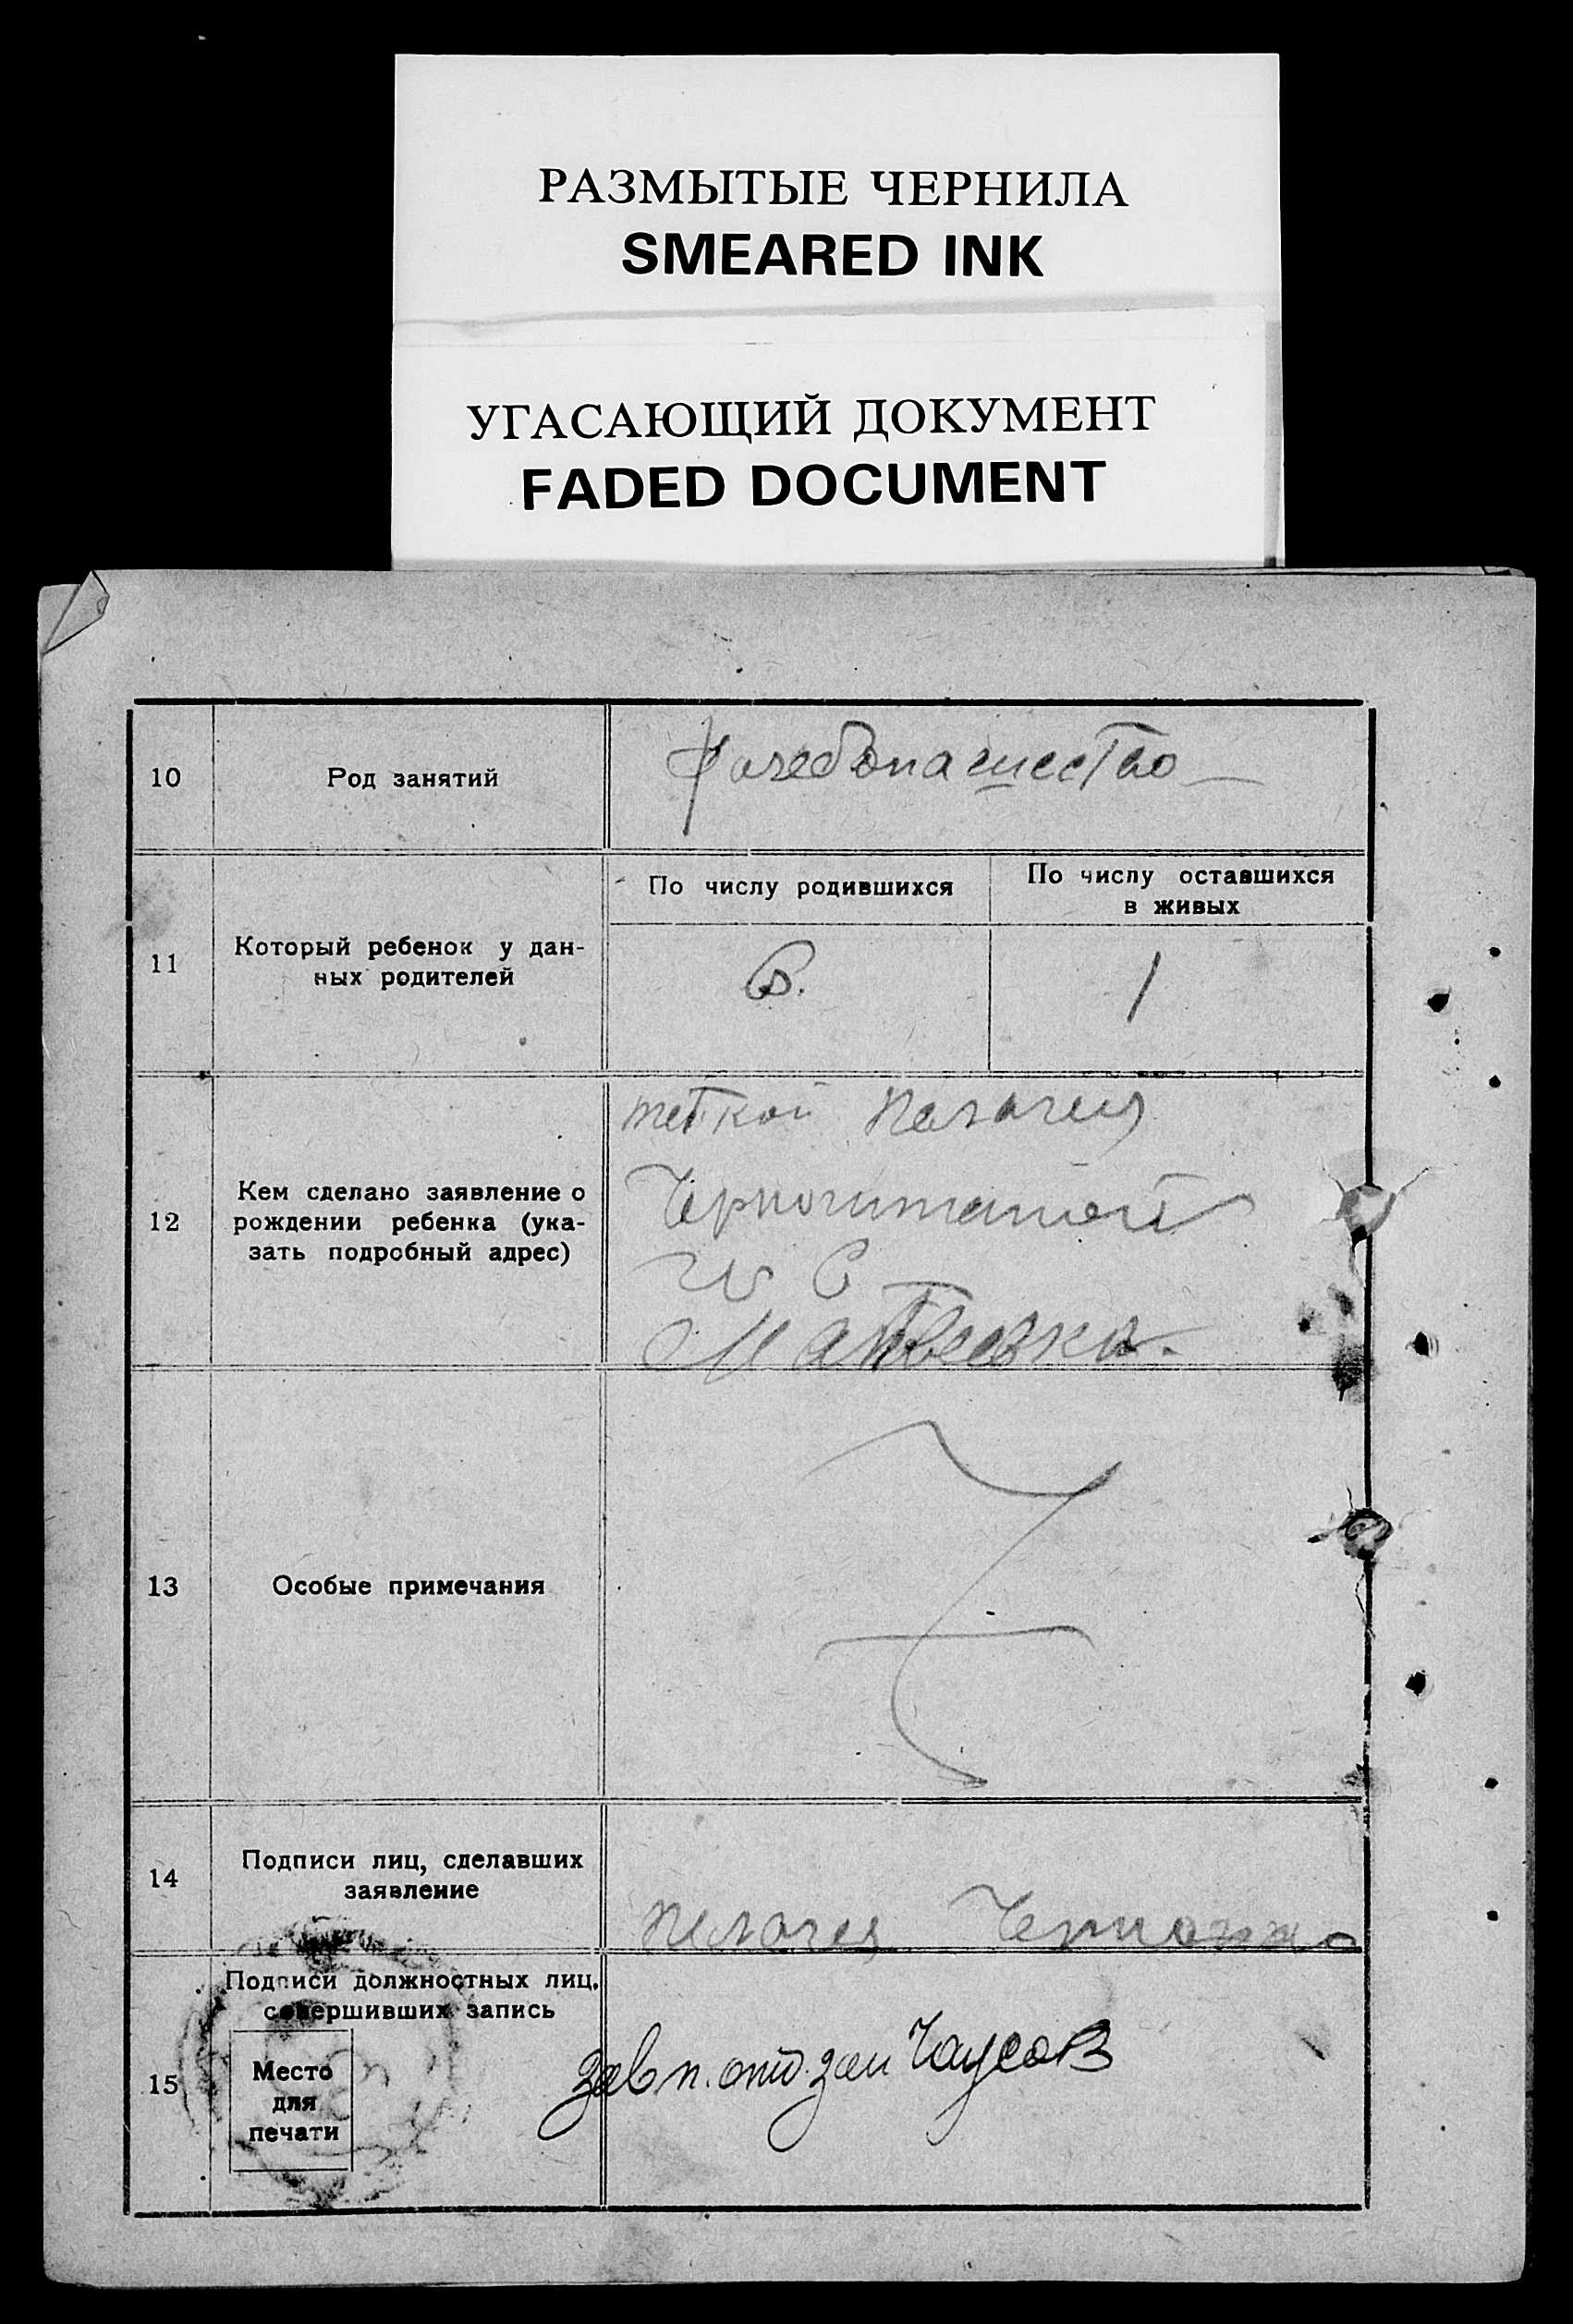 РАЗМЫТЫЕ ЧЕРНИЛА
SMEARED INK
УГАСАЮЩИЙ ДОКУМЕНТ
FADED DOCUMENT
10
Род занятий
По числу родившихся
По числу оставшихся
в живых
11
Который ребенок у дан-
ных родителей
1
12
Кем сделано заявление о
рождении ребенка (ука-
зать подробный адрес)
теткой Пелагея
С
Матвеевка.
13
Особые примечания
14
Подписи лиц, сделавших
заявление
Пелагея
Подписи должностных лиц,
совершивших запись
15
Место
для
печати
зав п. отд. зап Чаусов